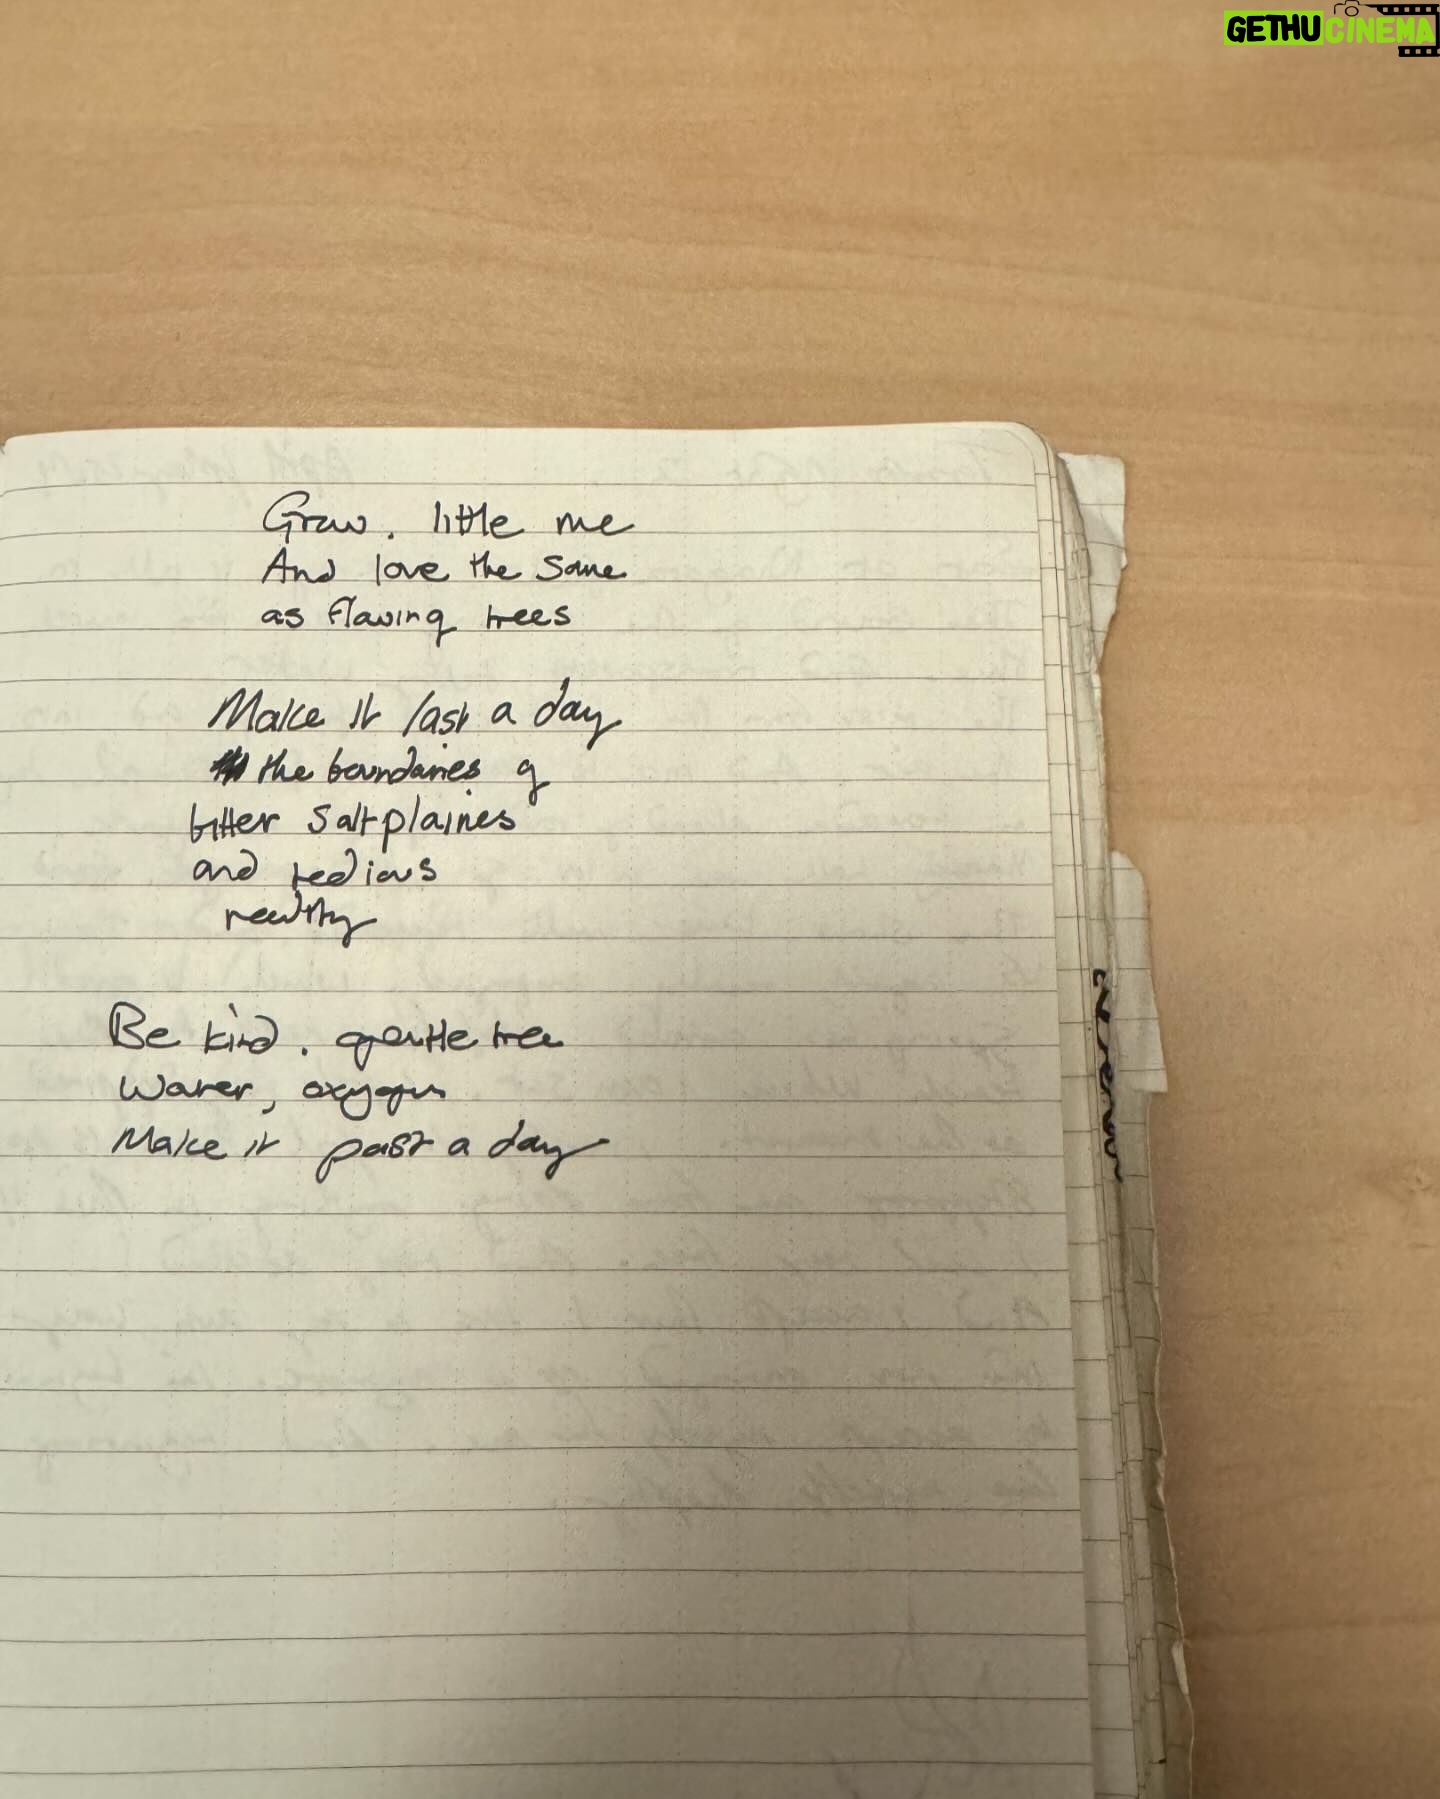 GETHUCINEMA
Grow. little me
And love the same
as flawing trees
Make it last a day
the boundaries of
bitter saltplaines
and tedious
reality
Be kind. gentle tree
Water, oxygen
Make it past a day